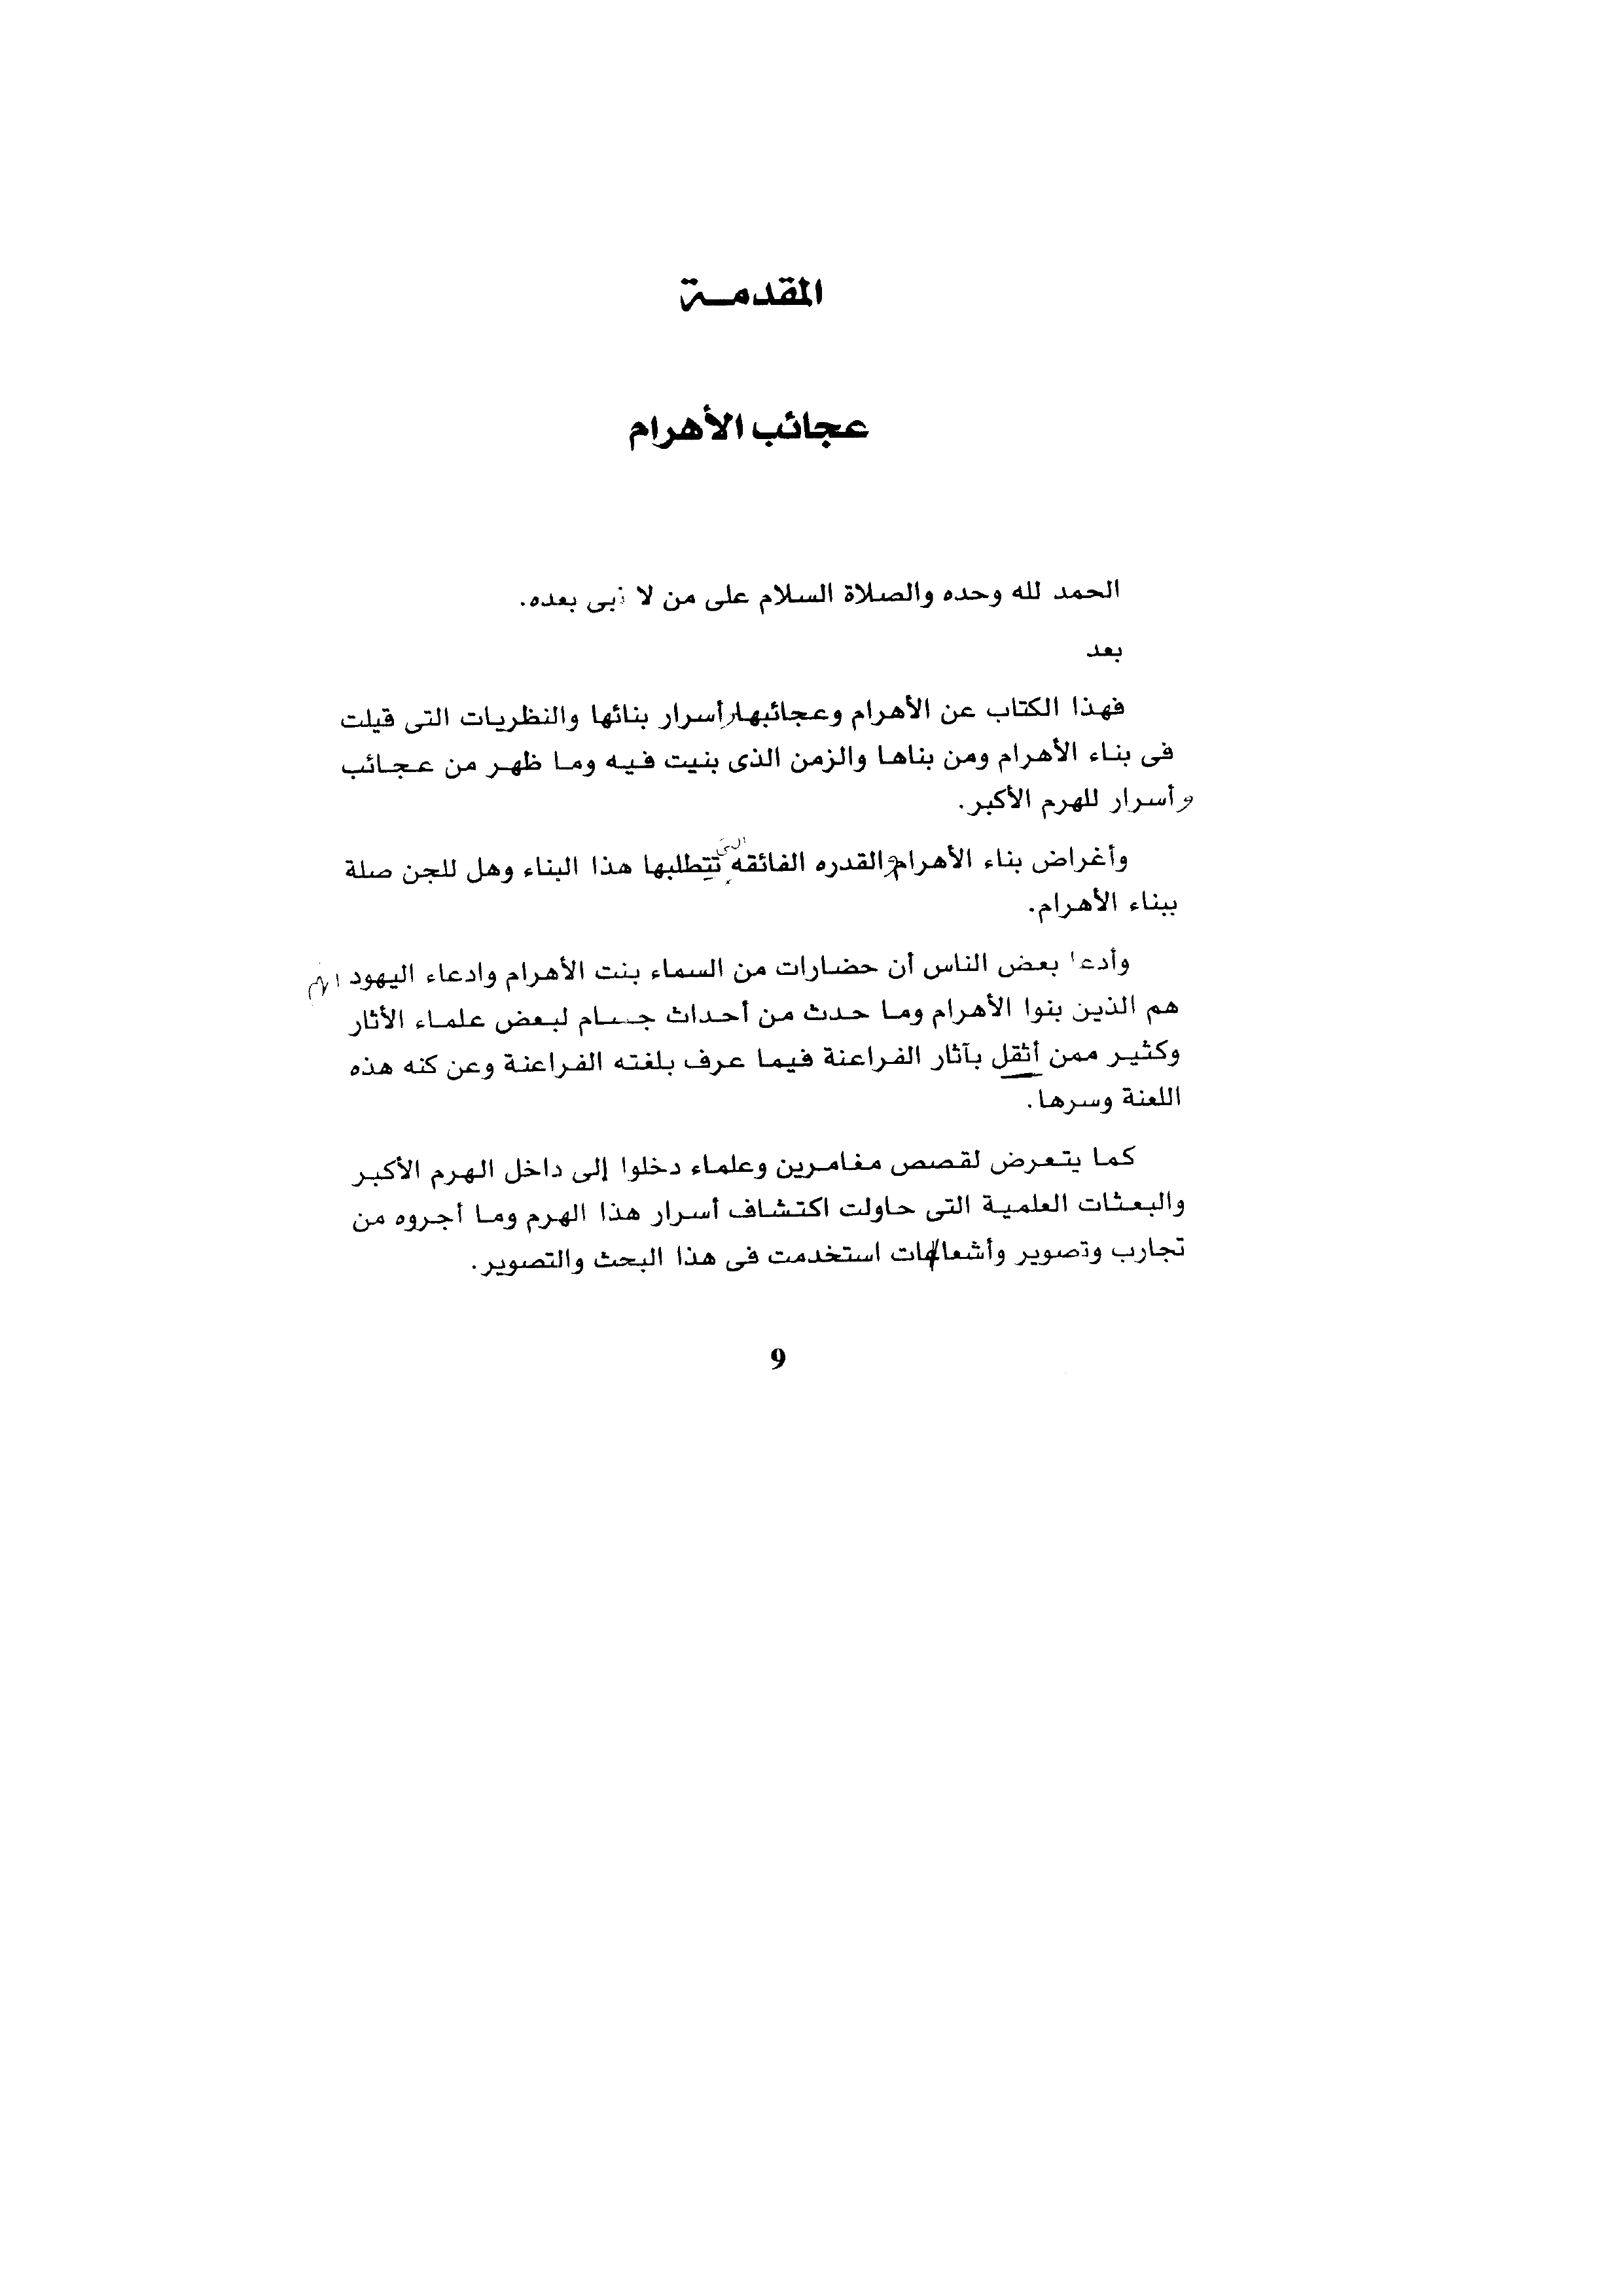 المقدمة
عجائب الأهرام
الحمد لله وحده والصلاة السلام على من لا نبى بعده.
بعد
فهذا الكتاب عن الأهرام وعجائبها وأسرار بنائها والنظريات التى قيلت
فى بناء الأهرام ومن بناها والزمن الذى بنيت فيه وما ظهر من عجائب
وأسرار للهرم الأكبر.
وأغراض بناء الأهرام والقدره الفائقه التى تتطلبها هذا البناء وهل للجن صلة
ببناء الأهرام.
وأدعا بعض الناس أن حضارات من السماء بنت الأهرام وادعاء اليهود انهم
هم الذين بنوا الأهرام وما حدث من أحداث جسام لبعض علماء الأثار
وكثير ممن أثقل بآثار الفراعنة فيما عرف بلغته الفراعنة وعن كنه هذه
اللعنة وسرها.
كما يتعرض لقصص مغامرين وعلماء دخلوا إلى داخل الهرم الأكبر
والبعثات العلمية التى حاولت اكتشاف أسرار هذا الهرم وما أجروه من
تجارب وتصوير وأشعاعات استخدمت فى هذا البحث والتصوير.
9